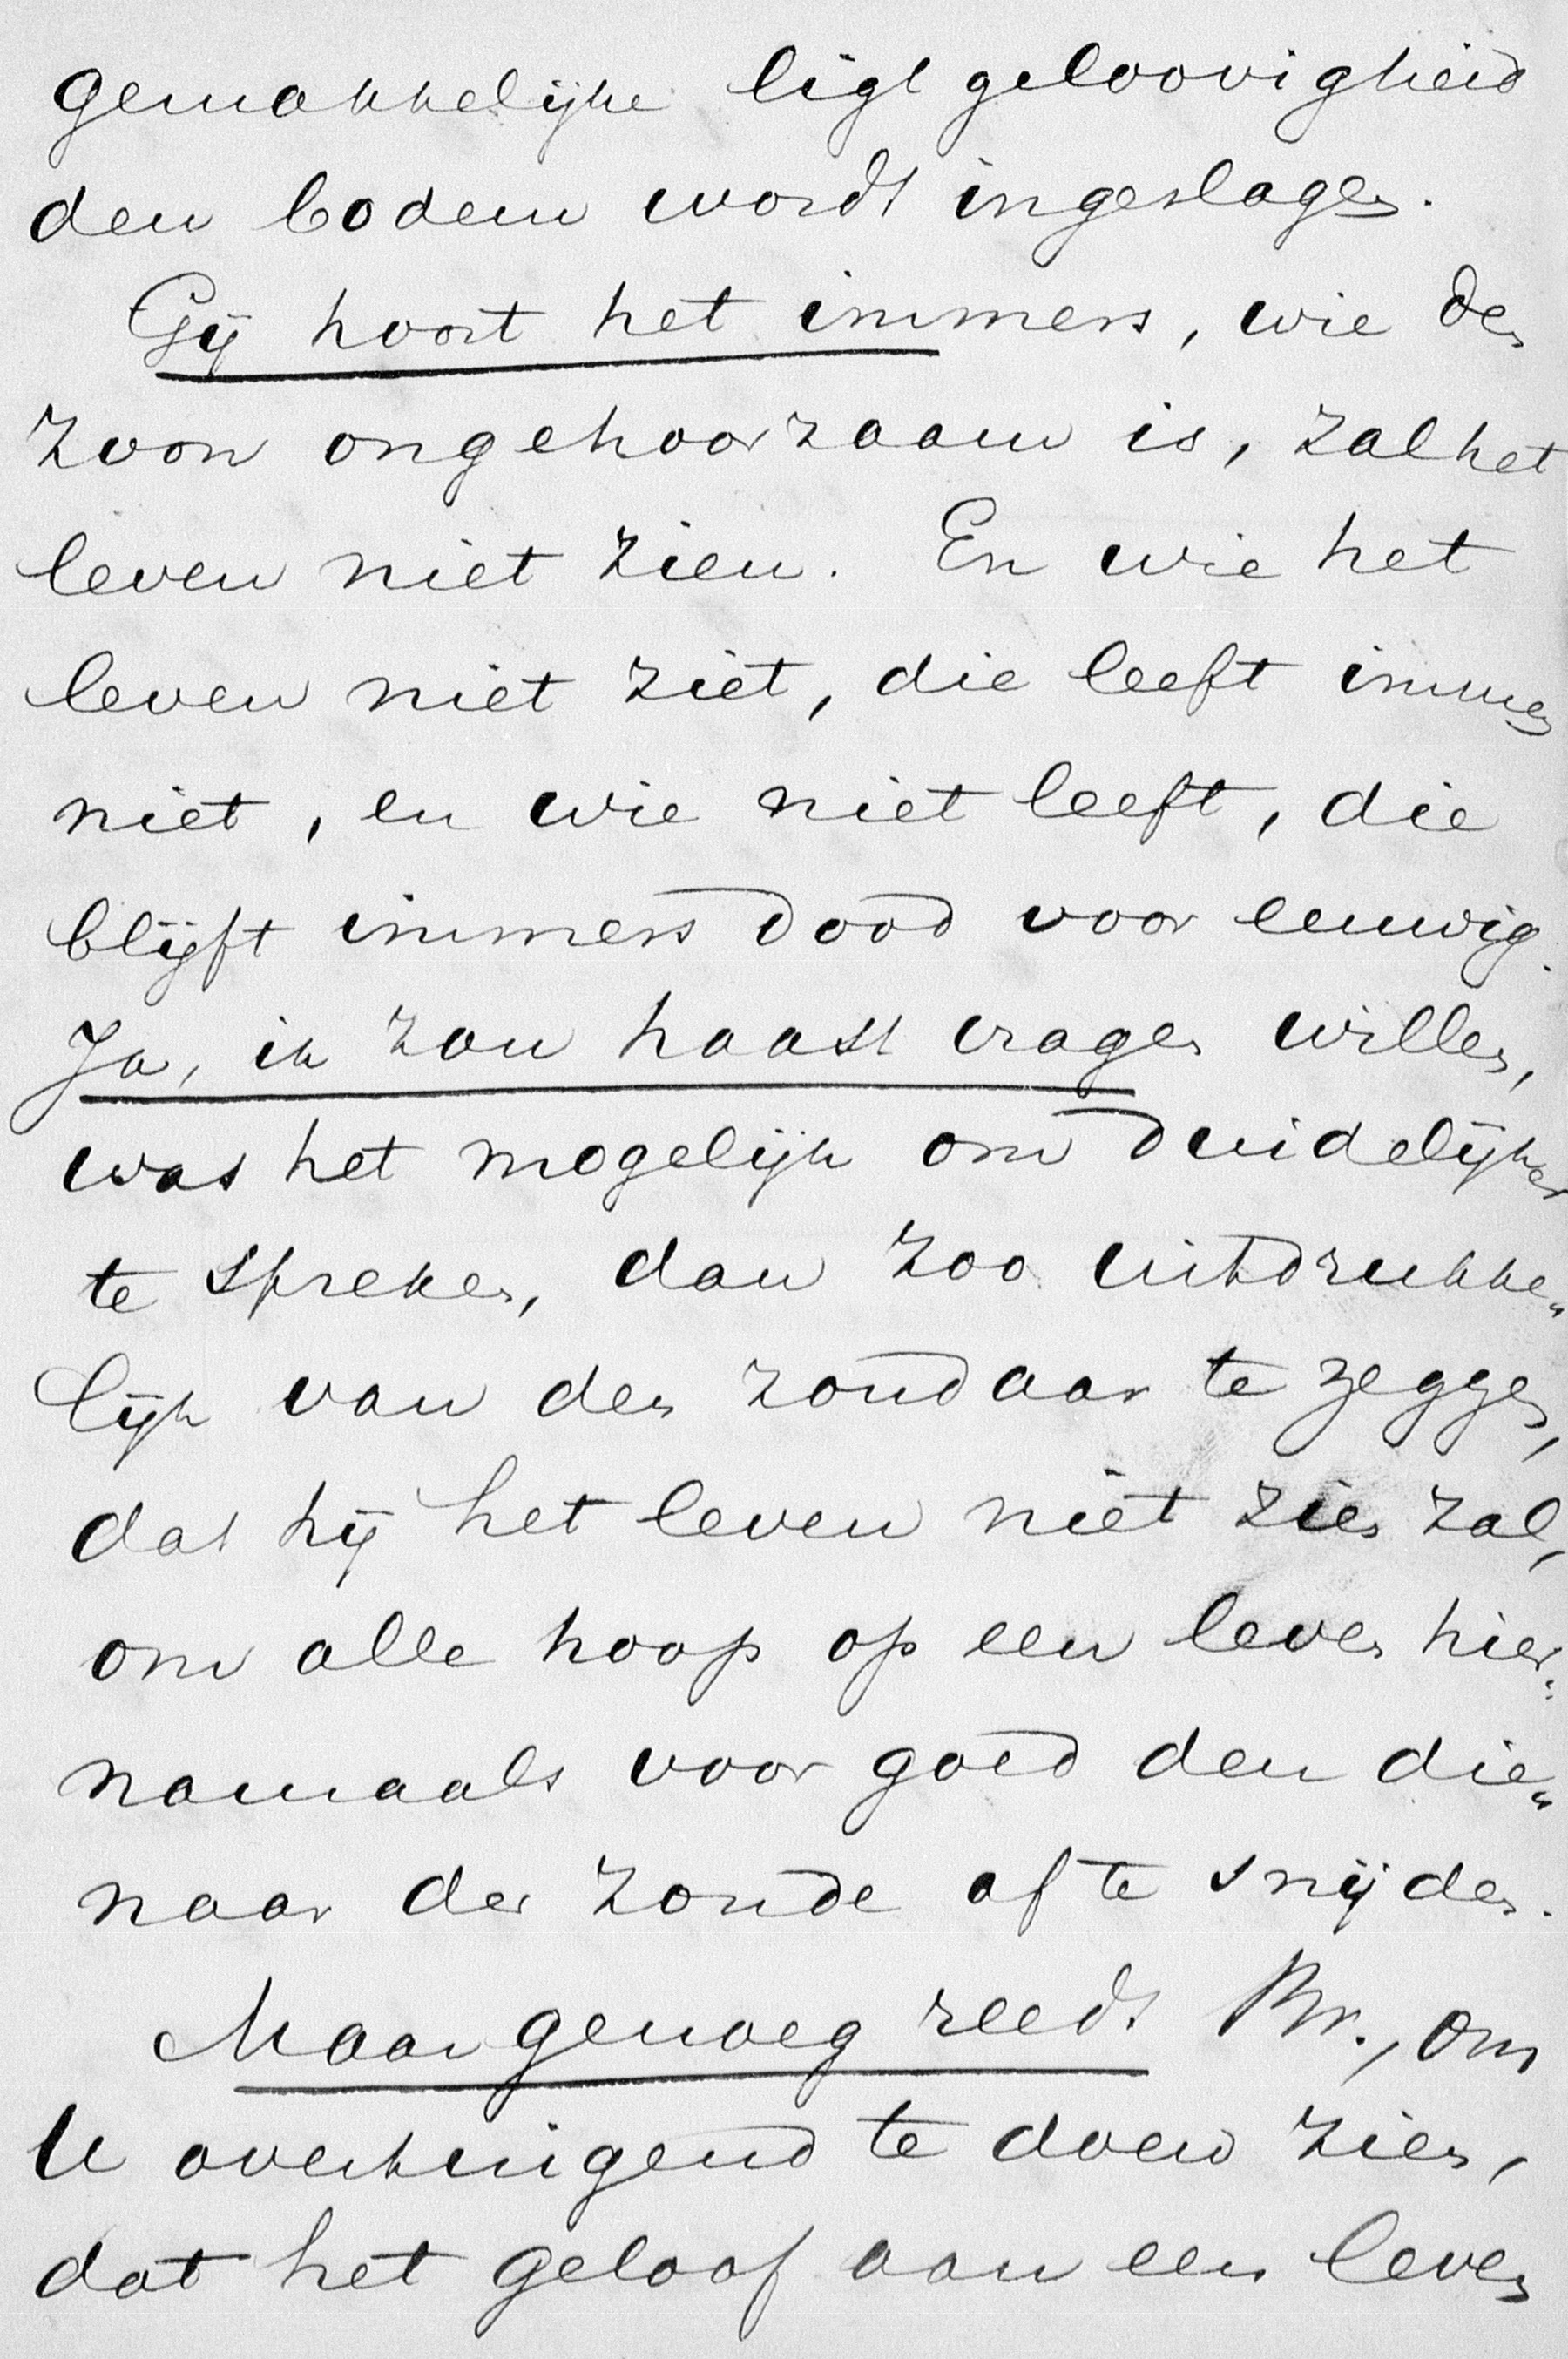 gemakkelijke ligtgeloovigheid
den bodem wordt ingeslagen.
Gij hoort het immers, wie den
zoon ongehoorzaam is, zal het
leven niet zien. En wie het
leven niet ziet, die leeft immers
niet, en wie niet leeft, die
blijft immers dood voor eeuwig.
Ja, ik zou haast vragen willen,
was het mogelijk om duidelijker
te spreken, dan zoo uitdrukke„
lijk van den zondaar te zeggen,
dat hij het leven niet zien zal,
om alle hoop op een leven hier„
namaals voor goed den die„
naar der zonde af te snijden.
Maar genoeg reeds Br., om
U overtuigend te doen zien,
dat het geloof aan een leven